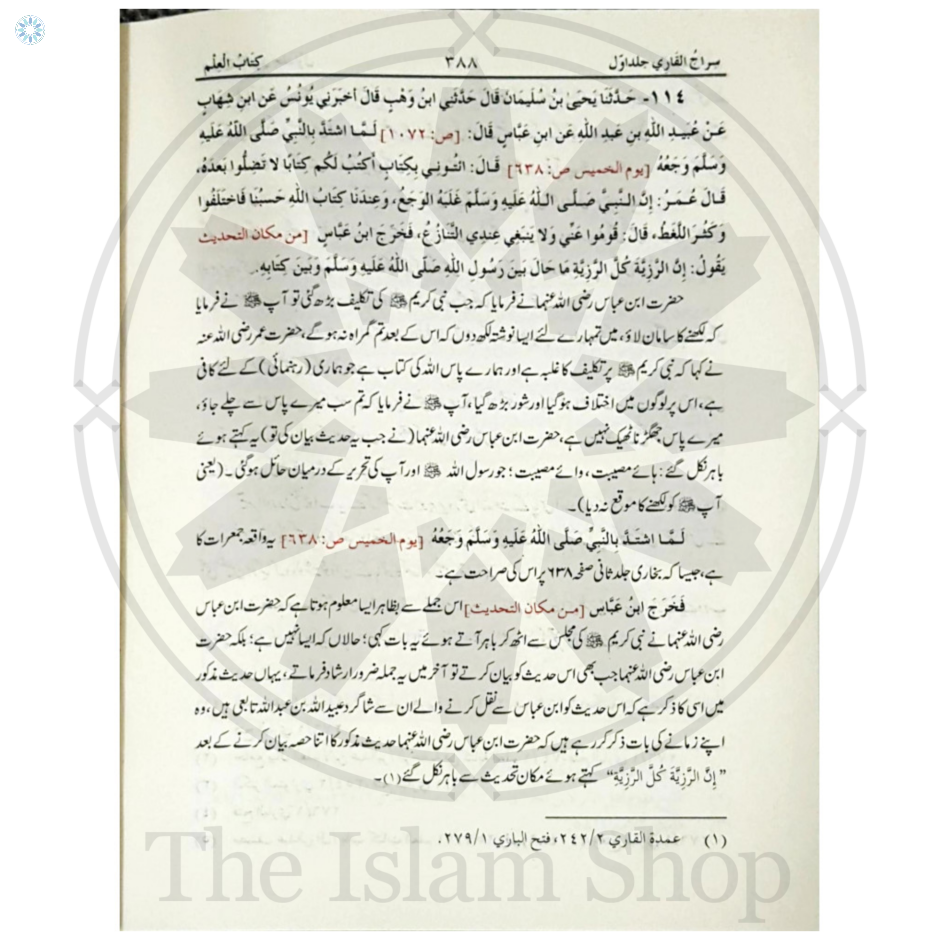 سِرَاجُ القَارِي جلداوّل ۳۸۸ كِتَابُ الْعِلْمِ
١١٤- حَدَّثَنَا يَحيَىٰ بنُ سُلَيمَانَ قَالَ حَدَّثَنِي ابنُ وَهْبٍ قَالَ أخبَرَنِي يُونُسُ عَنِ ابنِ شِهَابٍ
عَنْ عُبَيدِ اللّٰهِ بنِ عَبدِ اللّٰهِ عَنِ ابنِ عَبَّاسٍ قَالَ: [ص:۱۰۷۲] لَمَّا اشتَدَّ بِالنَّبِيِّ صَلَّى اللّٰهُ عَلَيهِ
وَسَلَّمَ وَجَعُهُ [يوم الخميس ص:٦٣٨] قَالَ: ائتُونِي بِكِتَابٍ أكتُبْ لَكُم كِتَابًا لا تَضِلُّوا بَعدَهُ،
قَالَ عُمَرُ: إِنَّ النَّبِيَّ صَلَّى اللّٰهُ عَلَيهِ وَسَلَّمَ غَلَبَهُ الوَجَعُ، وَعِندَنَا كِتَابُ اللّٰهِ حَسبُنَا فَاختَلَفُوا
وَكَثُرَ اللَّغَطُ، قَالَ: قُومُوا عَنِّي وَلا يَنبَغِي عِندِي التَّنَازُعُ، فَخَرَجَ ابنُ عَبَّاسٍ [من مكان التحديث
يَقُولُ: إِنَّ الرَّزِيَّةَ كُلَّ الرَّزِيَّةِ مَا حَالَ بَينَ رَسُولِ اللّٰهِ صَلَّى اللّٰهُ عَلَيهِ وَسَلَّمَ وَبَينَ كِتَابِهِ.
حضرت ابن عباس رضی اللہ عنہما نے فرمایا کہ جب نبی کریم ﷺ کی تکلیف بڑھ گئی تو آپ ﷺ نے فرمایا
کہ لکھنے کا سامان لاؤ، میں تمہارے لئے ایسا نوشتہ لکھ دوں کہ اس کے بعد تم گمراہ نہ ہوگے، حضرت عمر رضی اللہ عنہ
نے کہا کہ نبی کریم ﷺ پر تکلیف کا غلبہ ہے اور ہمارے پاس اللہ کی کتاب ہے جو ہماری (رہنمائی) کے لئے کافی
ہے، اس پر لوگوں میں اختلاف ہوگیا اور شور بڑھ گیا، آپ ﷺ نے فرمایا کہ تم سب میرے پاس سے چلے جاؤ،
میرے پاس جھگڑنا ٹھیک نہیں ہے، حضرت ابن عباس رضی اللہ عنہما (نے جب یہ حدیث بیان کی تو) یہ کہتے ہوئے
باہر نکل گئے: ہائے مصیبت، وائے مصیبت؛ جو رسول اللہ ﷺ اور آپ کی تحریر کے درمیان حائل ہوگئی۔ (یعنی
آپ ﷺ کو لکھنے کا موقع نہ دیا)۔
لَمَّا اشتَدَّ بِالنَّبِيِّ صَلَّى اللّٰهُ عَلَيهِ وَسَلَّمَ وَجَعُهُ [يوم الخميس ص:٦٣٨] یہ واقعہ جمعرات کا
ہے، جیسا کہ بخاری جلد ثانی صفحہ ۶۳۸ پر اس کی صراحت ہے۔
فَخَرَجَ ابنُ عَبَّاسٍ [من مكان التحديث] اس جملے سے بظاہر ایسا معلوم ہوتا ہے کہ حضرت ابن عباس
رضی اللہ عنہما نے نبی کریم ﷺ کی مجلس سے اٹھ کر باہر آتے ہوئے یہ بات کہی؛ حالاں کہ ایسا نہیں ہے؛ بلکہ حضرت
ابن عباس رضی اللہ عنہما جب بھی اس حدیث کو بیان کرتے تو آخر میں یہ جملہ ضرور ارشاد فرماتے، یہاں حدیث مذکور
میں اسی کا ذکر ہے کہ اس حدیث کو ابن عباس سے نقل کرنے والے ان سے شاگرد عبید اللہ بن عبد اللہ تابعی ہیں، وہ
اپنے زمانے کی بات ذکر کر رہے ہیں کہ حضرت ابن عباس رضی اللہ عنہما حدیث مذکور کا اتنا حصہ بیان کرنے کے بعد
"إِنَّ الرَّزِيَّةَ كُلَّ الرَّزِيَّةِ" کہتے ہوئے مکان تحدیث سے باہر نکل گئے (۱)۔
(۱) عمدة القاري ۲/۲٤۲، فتح الباري ۱/۲۷۹.
The Islam Shop